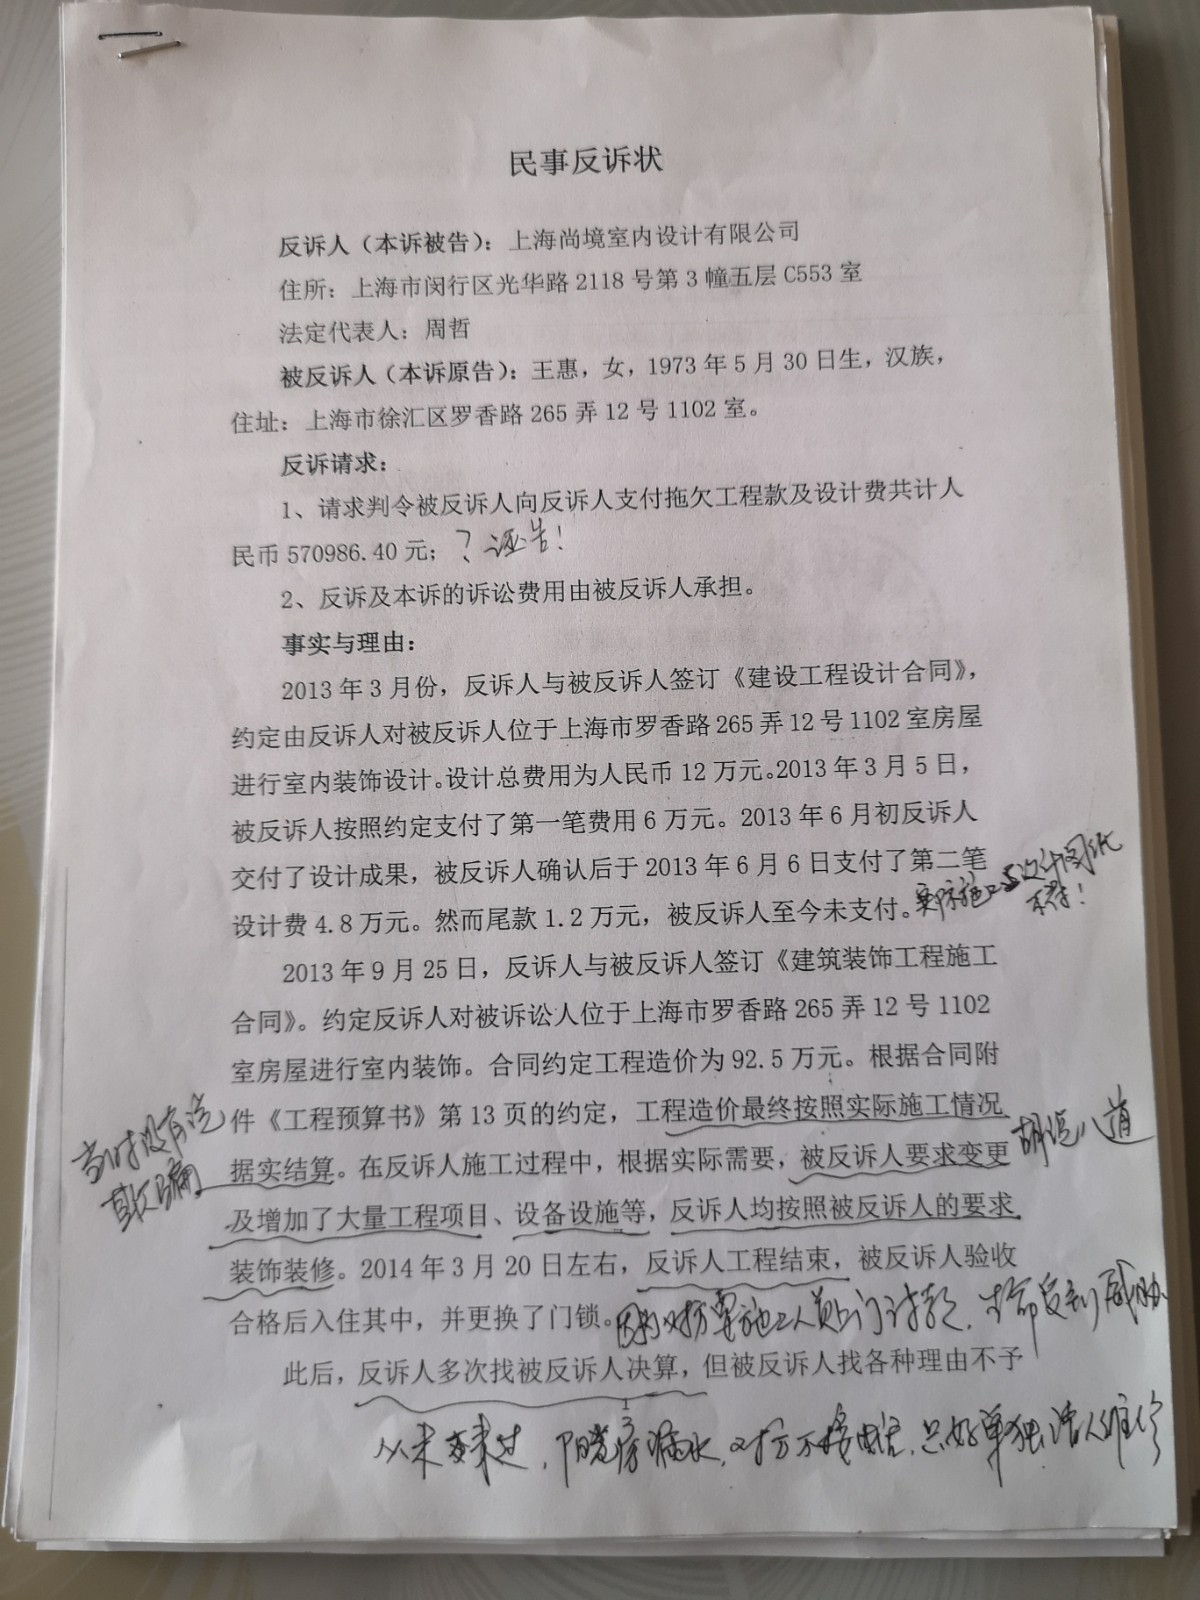 民事反诉状
反诉人（本诉被告）：上海尚境室内设计有限公司
住所：上海市闵行区光华路 2118 号第 3 幢五层 C553 室
法定代表人：周哲
被反诉人（本诉原告）：王惠，女，1973 年 5 月 30 日生，汉族，
住址：上海市徐汇区罗香路 265 弄 12 号 1102 室。
反诉请求：
1、请求判令被反诉人向反诉人支付拖欠工程款及设计费共计人
民币 570986.40 元；？诬告！
2、反诉及本诉的诉讼费用由被反诉人承担。
事实与理由：
2013 年 3 月份，反诉人与被反诉人签订《建设工程设计合同》，
约定由反诉人对被反诉人位于上海市罗香路 265 弄 12 号 1102 室房屋
进行室内装饰设计。设计总费用为人民币 12 万元。2013 年 3 月 5 日，
被反诉人按照约定支付了第一笔费用 6 万元。2013 年 6 月初反诉人
交付了设计成果，被反诉人确认后于 2013 年 6 月 6 日支付了第二笔
设计费 4.8 万元。然而尾款 1.2 万元，被反诉人至今未支付。
实际施工与设计图纸
不符！
2013 年 9 月 25 日，反诉人与被反诉人签订《建筑装饰工程施工
合同》。约定反诉人对被诉讼人位于上海市罗香路 265 弄 12 号 1102
室房屋进行室内装饰。合同约定工程造价为 92.5 万元。根据合同附
件《工程预算书》第 13 页的约定，工程造价最终按照实际施工情况
当时没有说
欺骗
据实结算。在反诉人施工过程中，根据实际需要，被反诉人要求变更
胡说八道
及增加了大量工程项目、设备设施等，反诉人均按照被反诉人的要求
装饰装修。2014 年 3 月 20 日左右，反诉人工程结束，被反诉人验收
合格后入住其中，并更换了门锁。
因为对方要施工人员上门讨款，生命受到威胁
此后，反诉人多次找被反诉人决算，但被反诉人找各种理由不予
1
从未来过，阳光房漏水，对方不接电话，只好单独请人维修